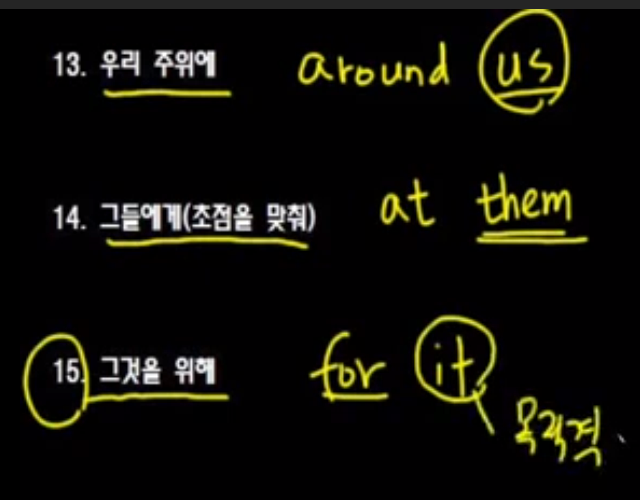 13. 우리 주위에 around us
14. 그들에게(초점을 맞춰) at them
15. 그것을 위해 for it
목적격